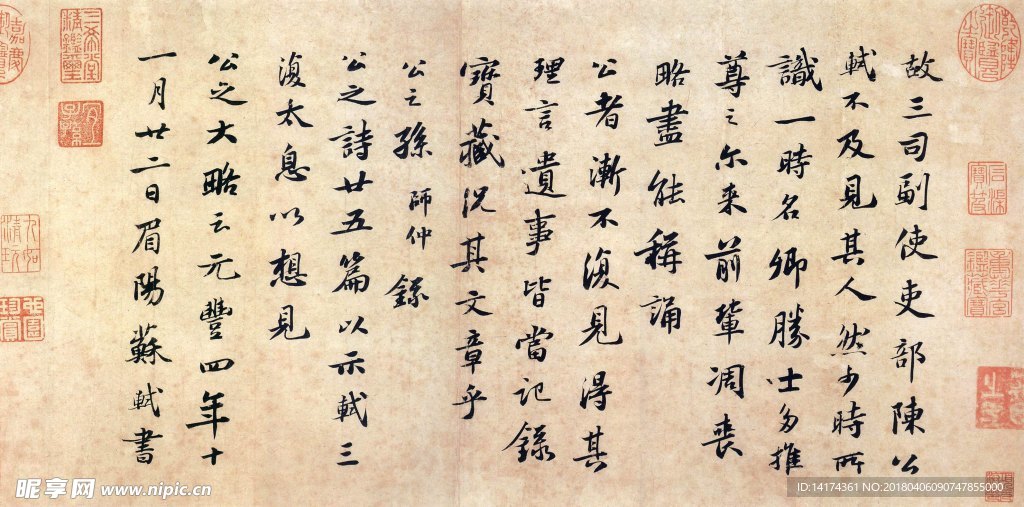 故三司副使吏部陳公
軾不及見其人然少時所
識一時名卿勝士多推
尊之尔来前輩凋喪
略盡能稱誦
公者漸不復見得其
理言遺事皆當記録
寶藏況其文章乎
公之孫師仲録
公之詩廿五篇以示軾三
復太息以想見
公之大略云元豐四年十
一月廿二日眉陽蘇軾書
乾隆御覽之寶
三希堂精鑑璽
宜子孫
嘉慶御覽之寶
石渠寶笈
昵享网 www.nipic.cn
ID:14174361 NO:20180406090747855000